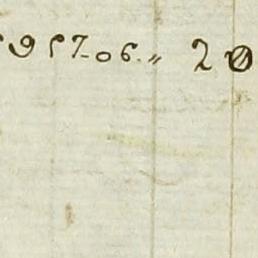 957-06.〃 20